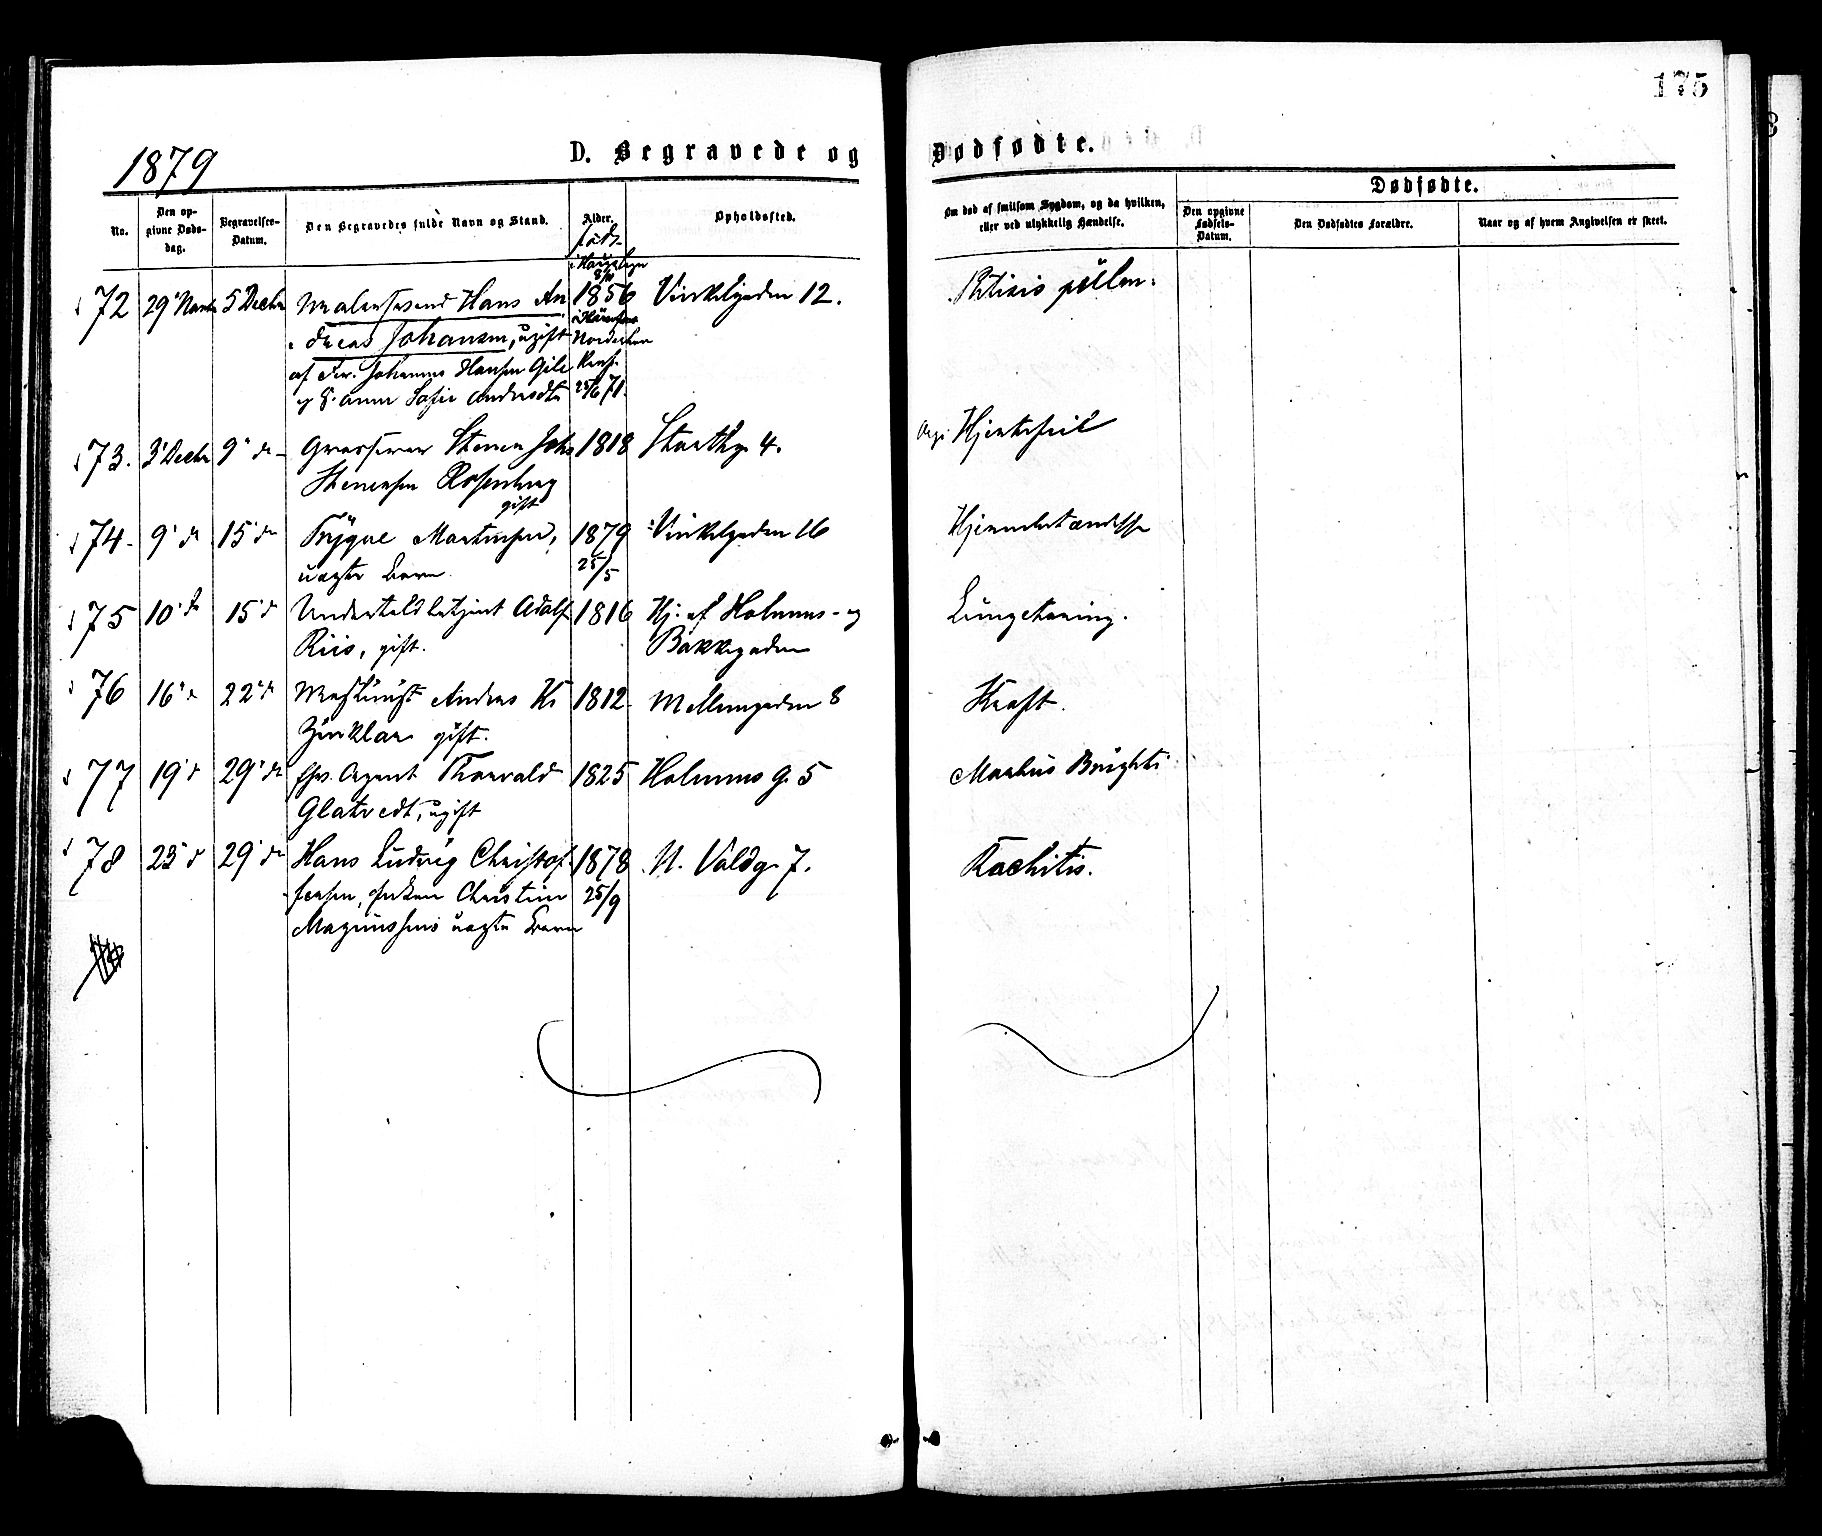 175
1879
D. Begravede og Dødfødte.
Dødfødte.
No.
Den opgivne Dødsdag.
Begravelses-Datum.
Den Begravedes fulde Navn og Stand.
Alder.
Opholdssted.
Om død af smitsom Sygdom, og da hvilken, eller ved ulykkelig Hændelse.
Den opgivne Fødsels-Datum.
Den Dødfødtes Forældre.
Naar og af hvem Angivelsen er skeet.
72 29' Novbr 5 Decbr Hans An 1856 Vinkelgaden 12.
dreas Johansen, ugift
af Johannes Hansen
Anna Sofie Andersdtr 25/6 71.
73. 3' Decbr 9' d Grosserer Steener Johs 1818 Strandg. 4. Hjertefeil
Steenersen Rosenberg
gift
74 9' d 15' d Trygve Martinsen, 1879 Vinkelgaden 16 Hjernebetændelse
uægte Barn 25/5
75 10' d 15' d Undertoldbetjent Adolf 1816 Hj. af Holmens- og Lungetæring.
Riis, gift. Bakkegaden
76 16' d 22' d Andreas Kr 1812 Mellemgaden 8 Kræft.
Zinklar gift.
77 19' d 29' d fhv. Agent Thorvald 1825 Holmens g. 5 Morbus Brighti
Glatvedt, ugift
78 23' d 29' d Hans Ludvig Christof 1878 N. Voldg. 7. Rachitis.
fersen, Enken Christine 25/9
Magnussens uægte Barn